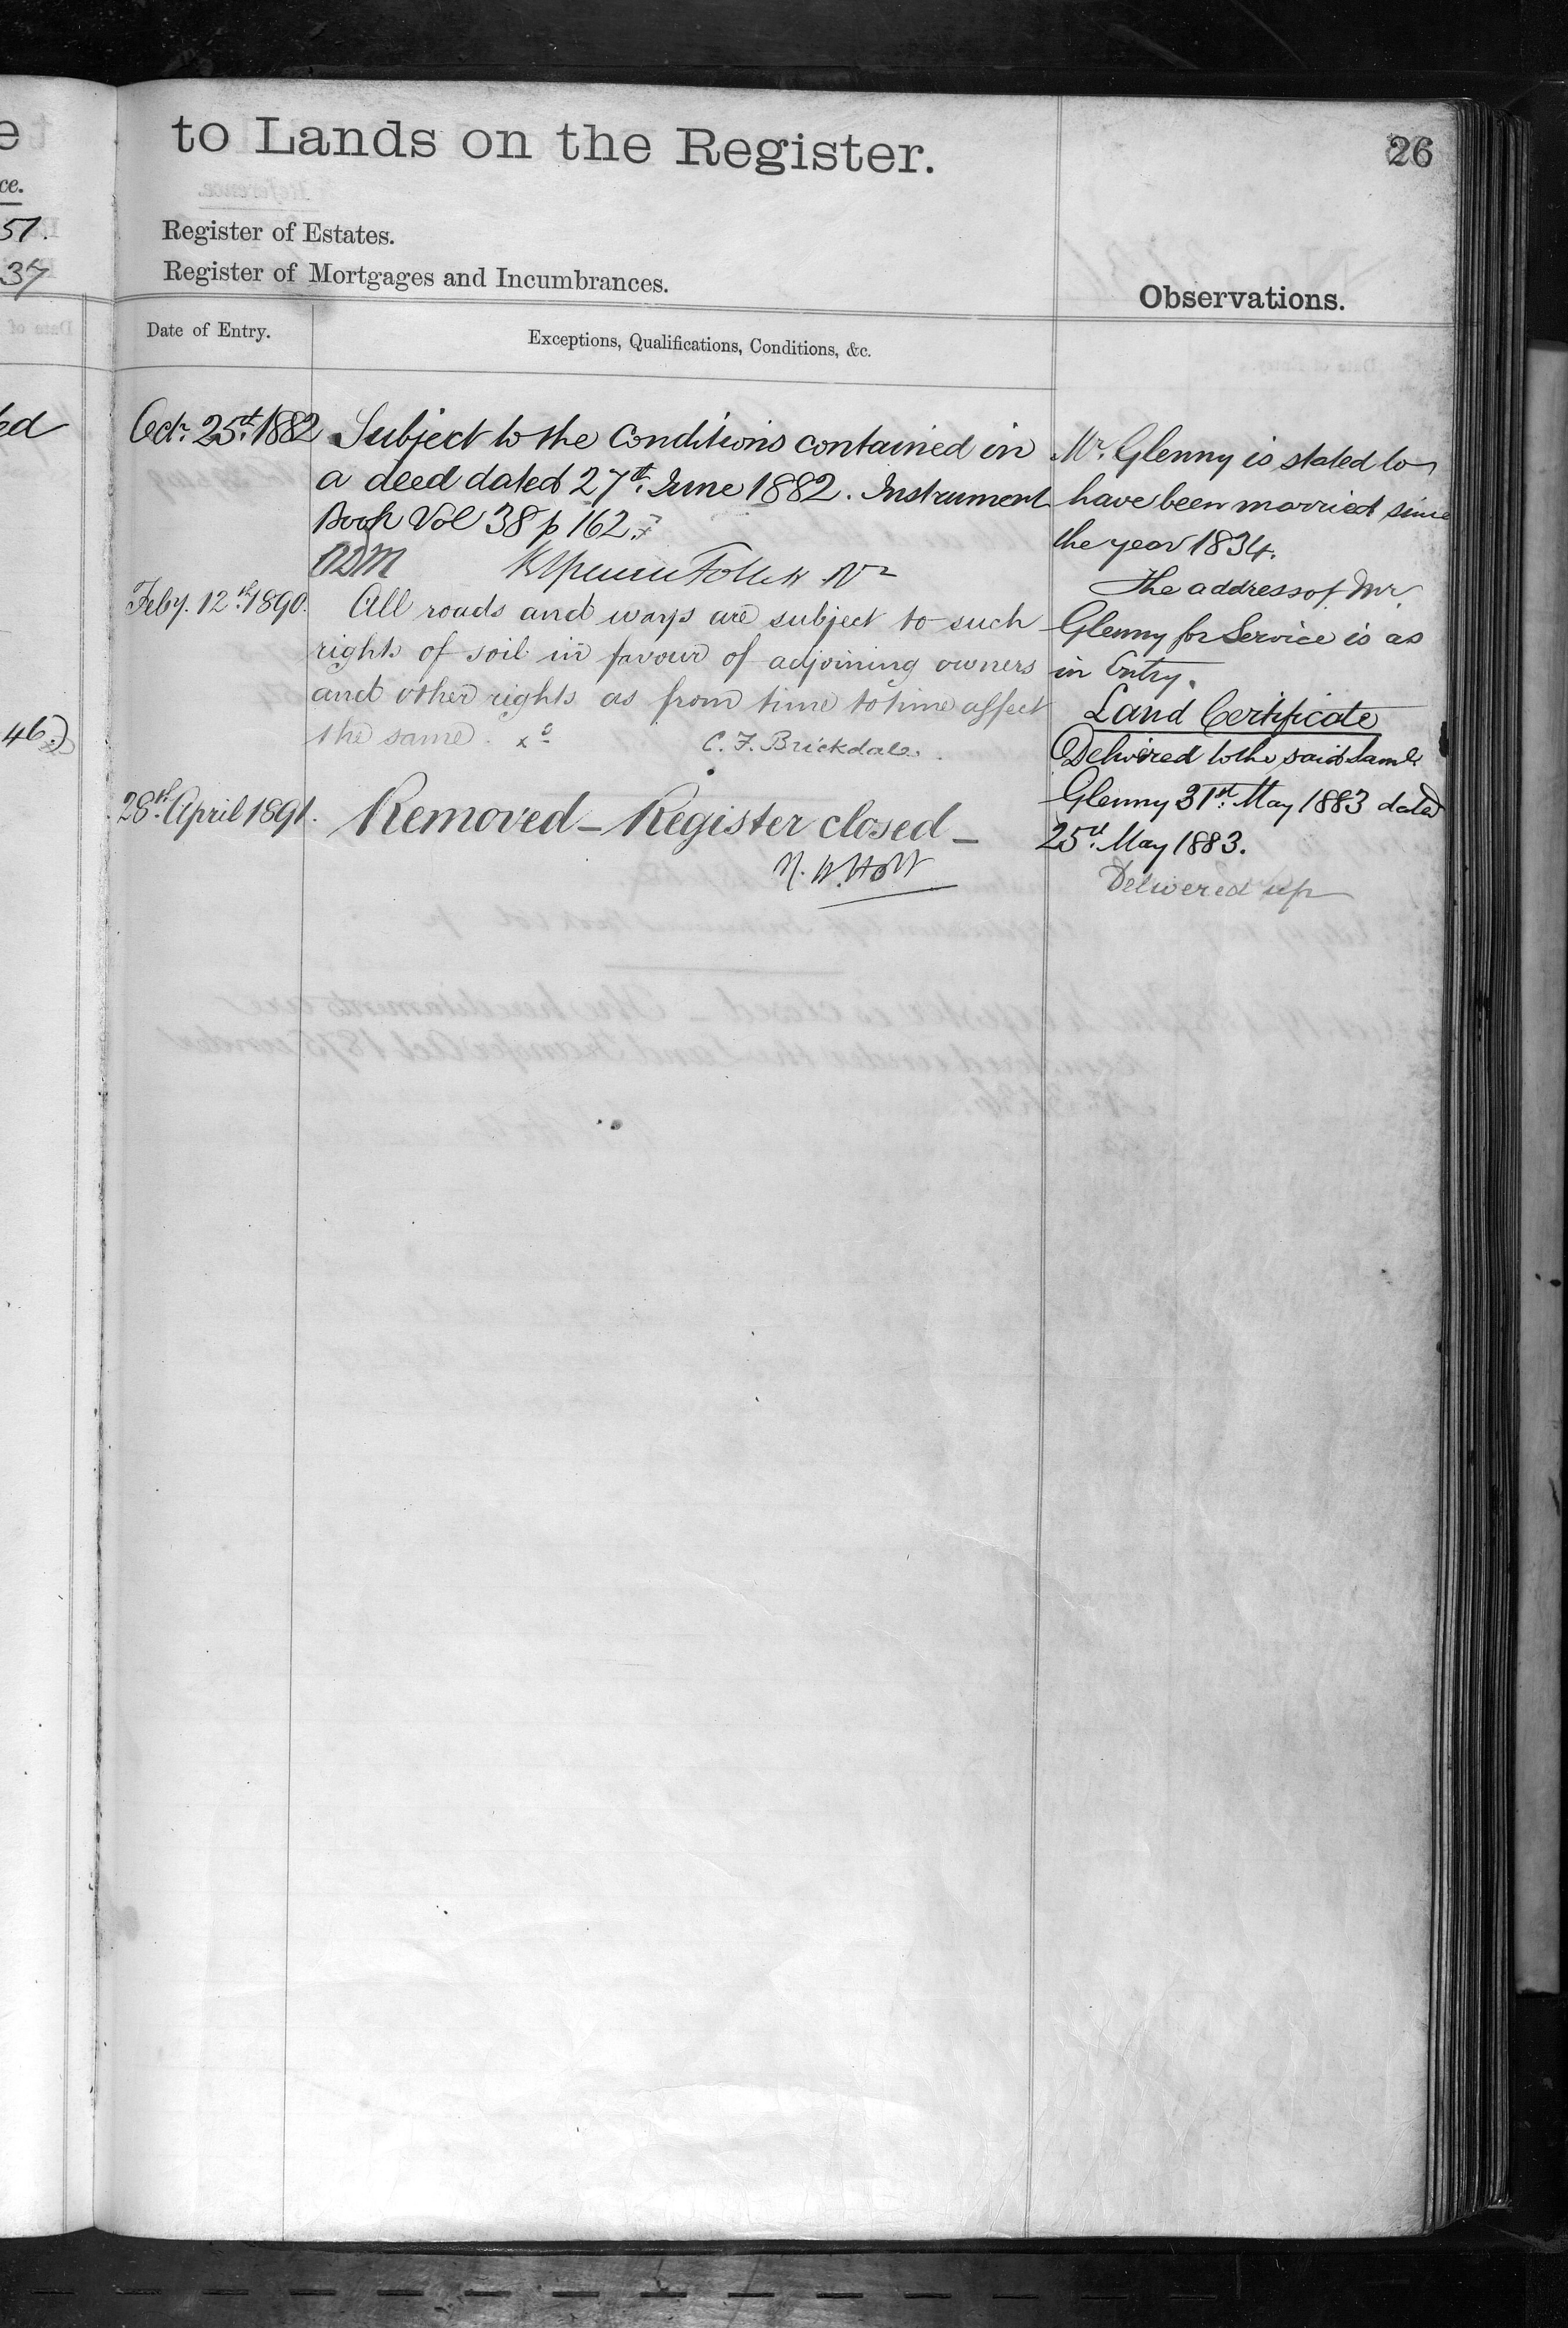 e
ce.
51.
37
ed
46.)
to Lands on the Register.
26
Register of Estates.
Register of Mortgages and Incumbrances.
Observations.
Date of Entry.
Exceptions, Qualifications, Conditions, &c.
Octr. 25th. 1882
Subject to the Conditions contained in
a deed dated 27th. June 1882. Instrument
Book Vol 38 p 162.
Feby. 12th. 1890.
All roads and ways are subject to such
rights of soil in favour of adjoining owners
and other rights as from time to time affect
the same.
C. F. Brickdale.
28th. April 1891.
Removed – Register closed –
N. W. Holt
Mr. Glenny is stated to
have been married since
the year 1834.
The address of Mr.
Glenny for Service is as
in Entry.
Land Certificate
Delivered to the said Saml.
Glenny 31st. May 1883 dated
25th. May 1883.
Delivered up